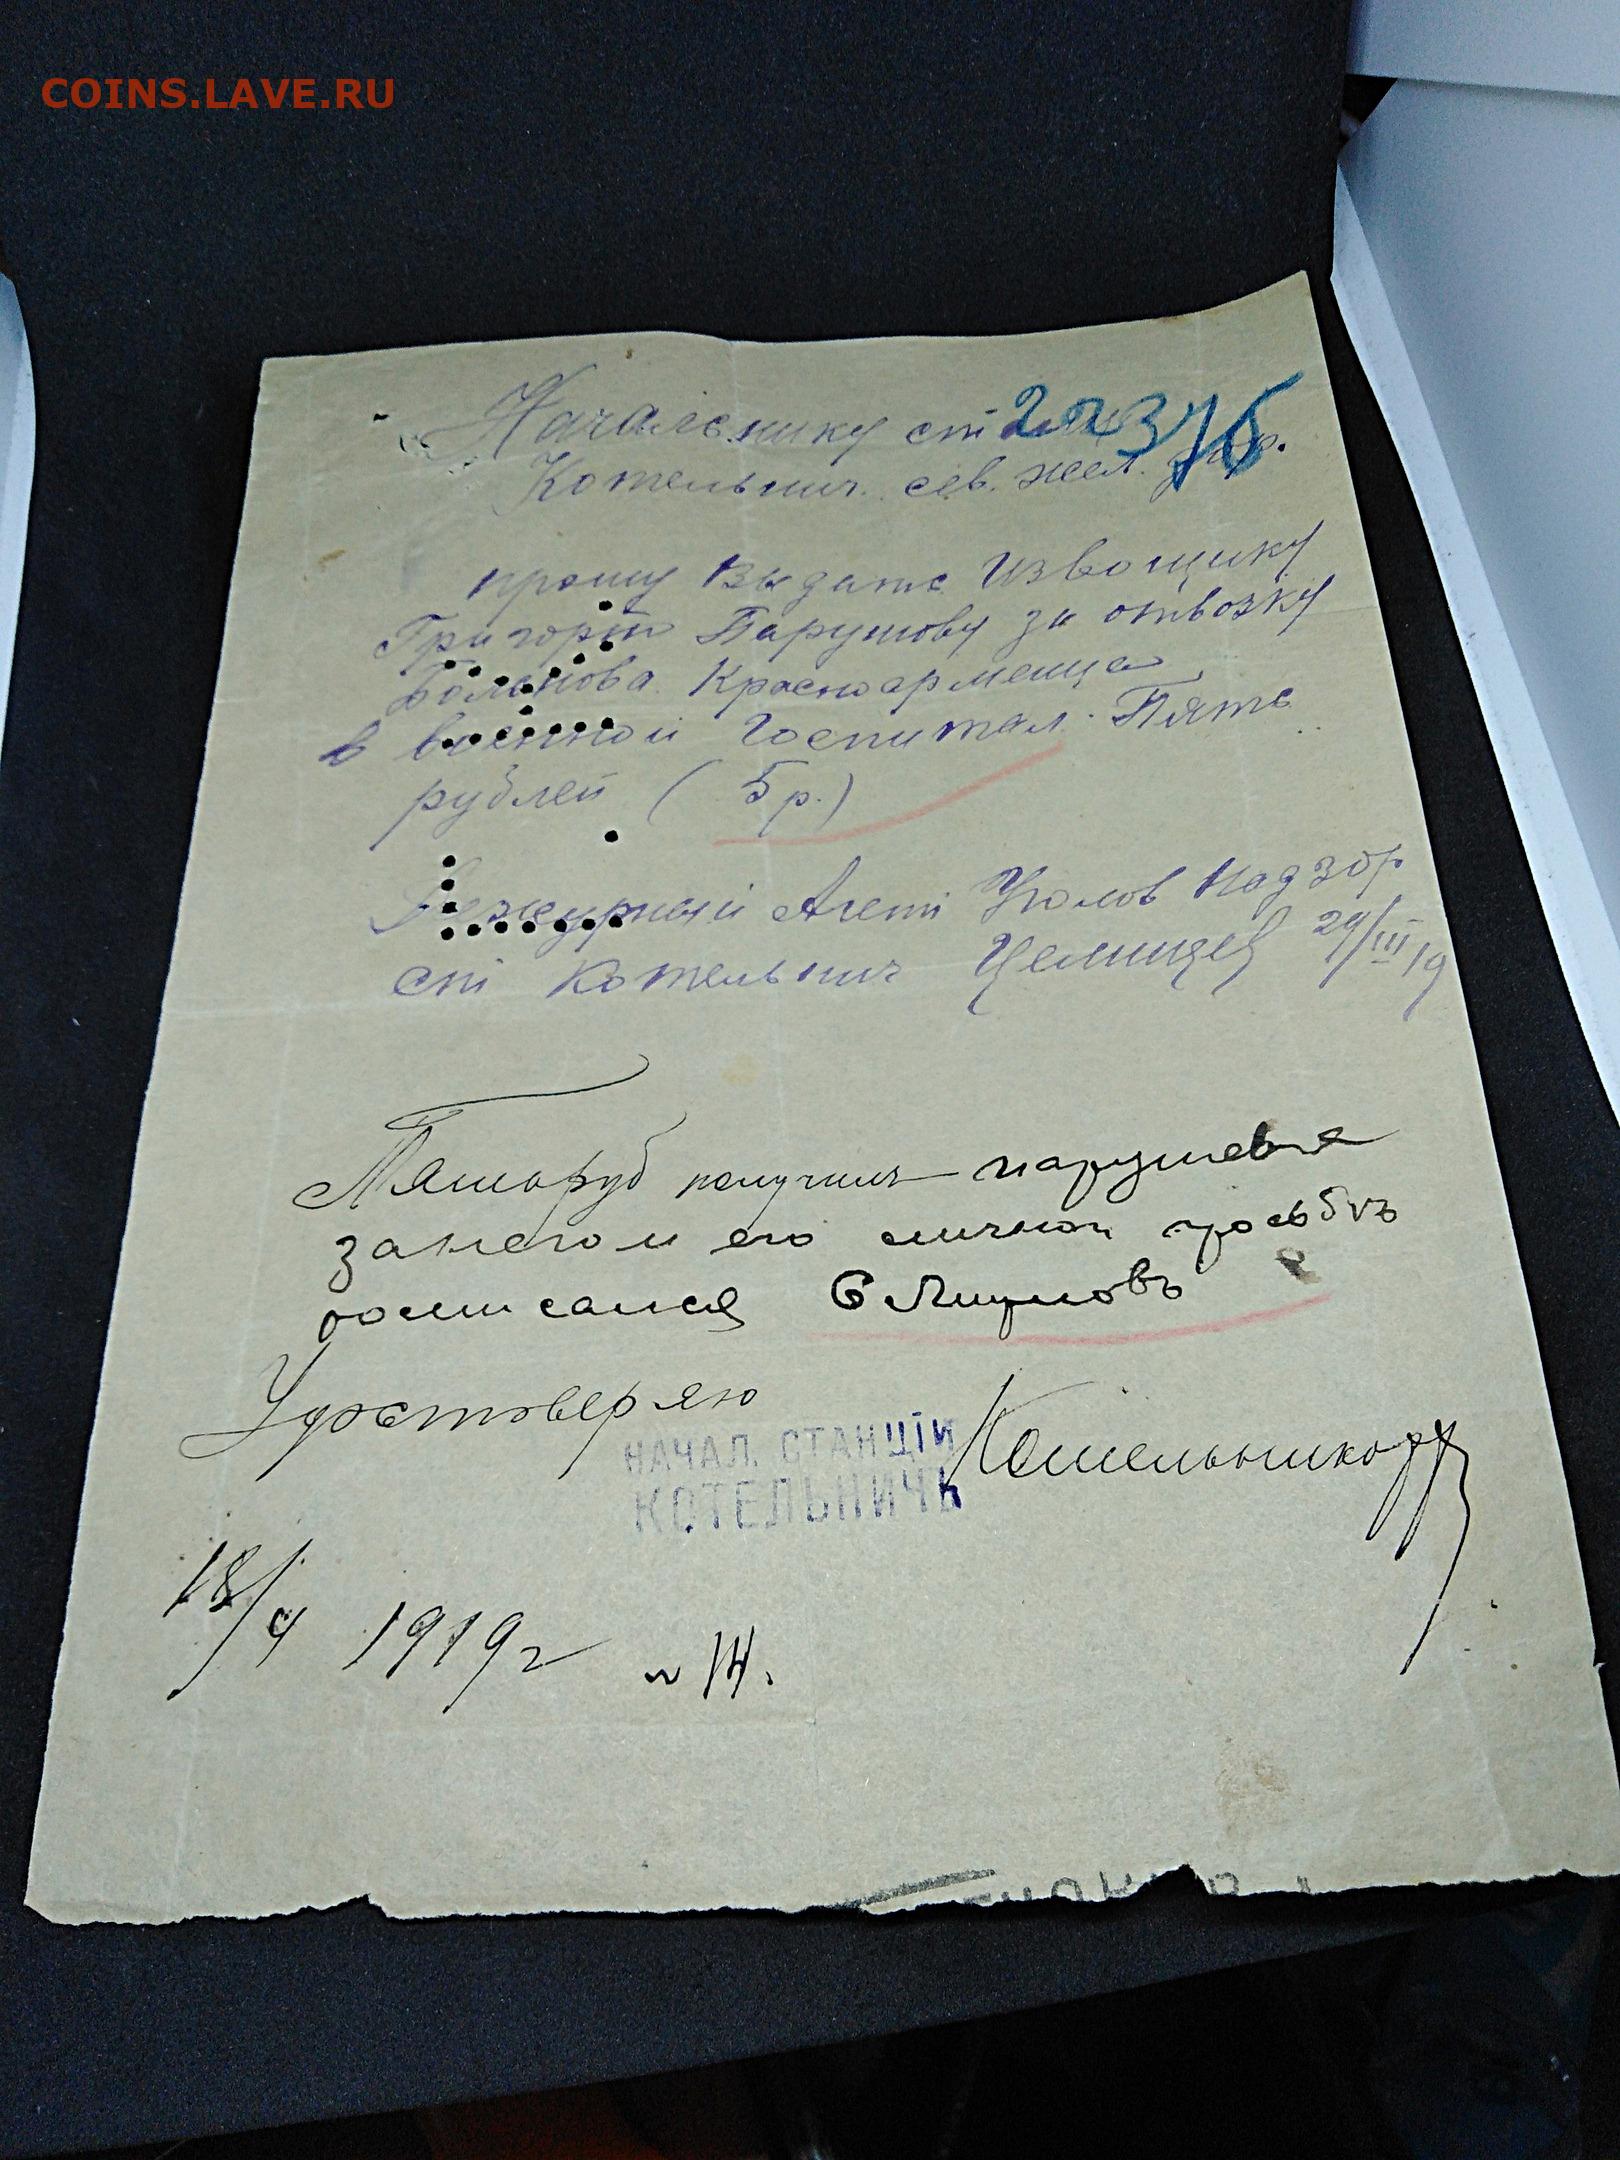 COINS.LAVE.RU
Начальнику ст
Котельнич. сев. жел. дор.
прошу выдать извощику
Григорию Парушову за отвозку
больнова красноармейца
в военной госпитал. Пять
рублей (5 р.)
Дежурный Агент Уголов Надзор
ст Котельнич 29/III 19
Пять руб получилъ Парушевъ
занего и его личной прозьбѣ
росписался
Удостоверяю
НАЧАЛ. СТАНЦІИ
КОТЕЛЬНИЧЪ
18/4 1919 г